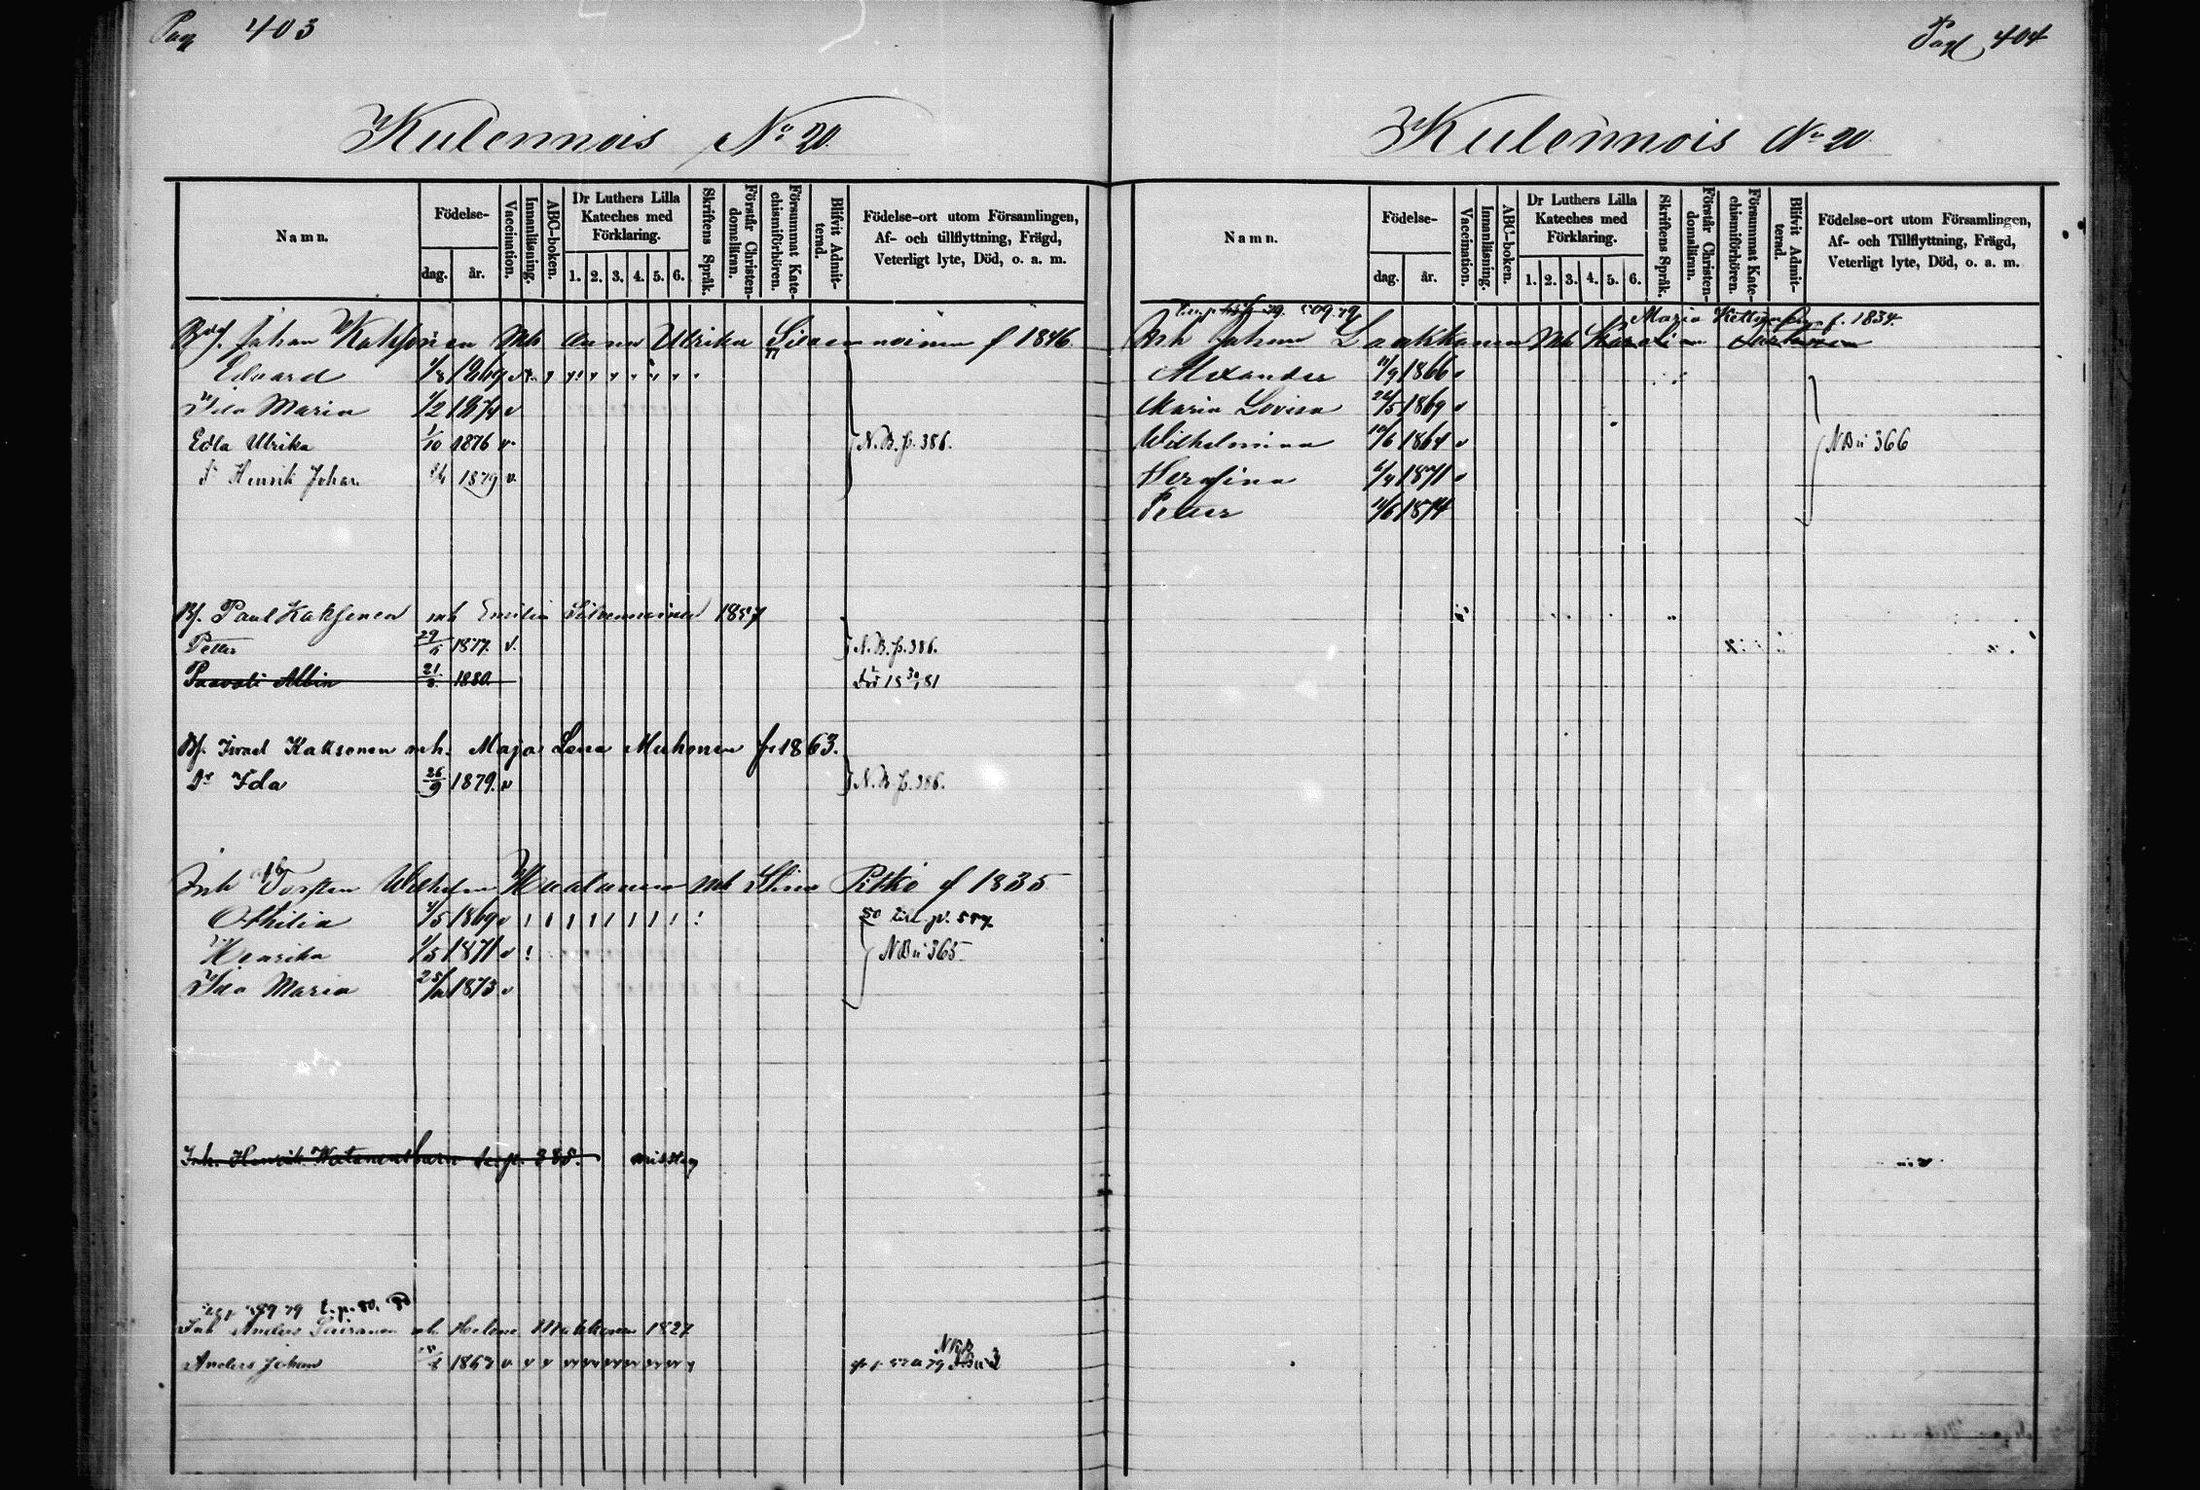 Pag 403
Kulennois No 20.
Namn.
Födelse-
dag.
år.
Vaccination.
Innanläsning.
ABC-boken.
Dr Luthers Lilla
Kateches med
Förklaring.
1. 2. 3. 4. 5. 6.
Skriftens Språk.
Förstår Christen-
domsläran.
Försummat Kate-
chismiförhören.
Blifvit Admit-
terad.
Födelse-ort utom Församlingen,
Af- och tillflyttning, Frägd,
Veterligt lyte, Död, o. a. m.
Johan Kaksonen mh Anna Ulrika f 1846
Edvard 1/8 1869 v
Ida Maria 1/2 1874 v
Edla Ulrika 1/10 1876 v
N.B. p. 386.
Henrik Johan 1879 v
Bf. Paul Kaksonen mh Emilia Silvennoinen 1857
Petter 29 1877. v.
N.B. p. 386.
Paavali Albin 21 1880.
Död 18 30/1 81
Bf. Israel Kaksonen mh. Maja Lena Muhonen f. 1863.
Dr Ida 26/9 1879. v
N.B. p. 386.
Inh Torsten Wilhelm mh Stina Pitko f 1835
Othilia 1/5 1869 v
till p. 557.
Henrika 1/5 1871 v
NB 365
Ida Maria 25 1873 v
Inh. Henrik 385.
79 t.p. 80.
Inh Anders mh Helena Makkonen 1827
Anders Johan 1867 v
Pag 404
Kulennois No 20.
Namn.
Födelse-
dag.
år.
Vaccination.
Innanläsning.
ABC-boken.
Dr Luthers Lilla
Kateches med
Förklaring.
1. 2. 3. 4. 5. 6.
Skriftens Språk.
Förstår Christen-
domsläran.
Försummat Kate-
chismiförhören.
Blifvit Admit-
terad.
Födelse-ort utom Församlingen,
Af- och Tillflyttning, Frägd,
Veterligt lyte, Död, o. a. m.
509 79
Maria f. 1834.
Inh Johan Laakkonen mh
Alexander 11/9 1866 v
Maria Lovisa 1869 v
Wilhelmina 10/6 1864 v
NB 366
Serafina 6/4 1871 v
Petter 11/6 1874